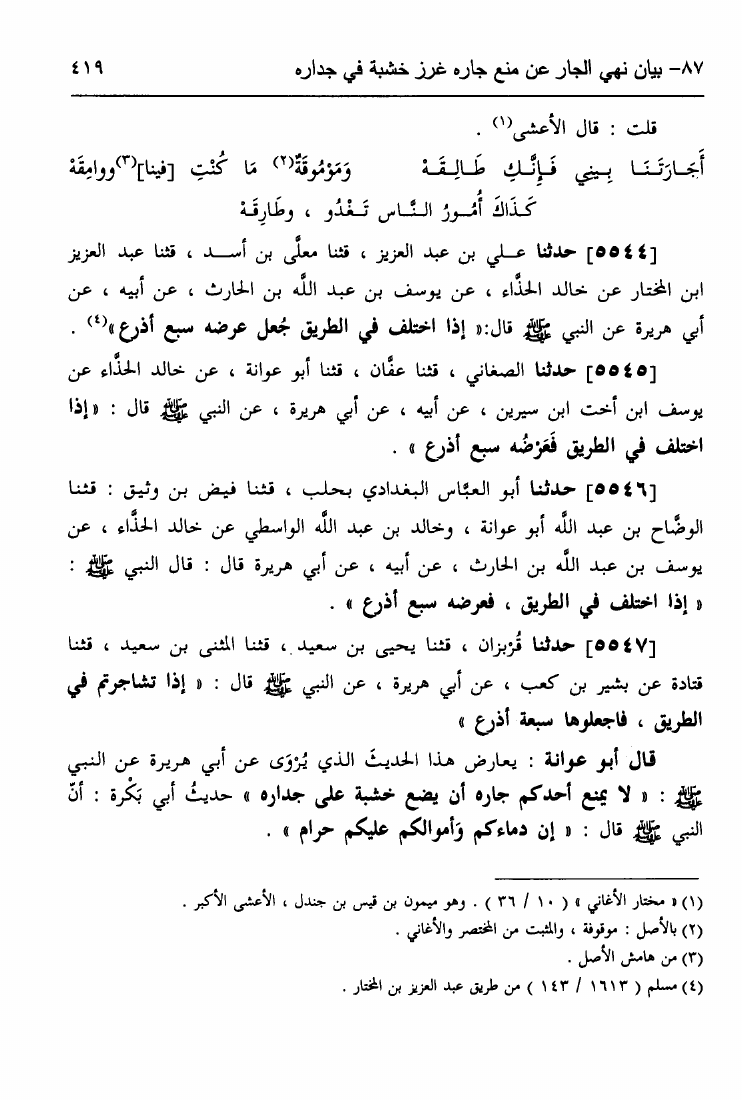 ٨٧- بيان نهي الجار عن منع جاره غرز خشبة في جداره ٤١٩
قلت : قال الأعشى(١) .
أَجَـارَتَـنَـا بِـيـنِي فَـإِنَّـكِ طَـالِـقَـهْ وَمَوْمُوقَةٌ(٢) مَا كُنْتِ [فينا](٣)ووامِقَهْ
كَـذَاكَ أُمُـورُ الـنَّـاس تَـغْـدُو ، وطَارِقَـهْ
[٥٥٤٤] حدثنا عـلـي بن عبد العزيز ، قثنا معلَّى بن أسـد ، قثنا عبد العزيز
ابن المختار عن خالد الحذَّاء ، عن يوسف بن عبد اللَّه بن الحارث ، عن أبيه ، عن
أبي هريرة عن النبي ﷺ قال:« إذا اختلف في الطريق جُعل عرضه سبع أذرع»(٤) .
[٥٥٤٥] حدثنا الصغاني ، قثنا عفَّان ، قثنا أبو عوانة ، عن خالد الحذاء عن
يوسف ابن أخت ابن سيرين ، عن أبيه ، عن أبي هريرة ، عن النبي ﷺ قال : « إذا
اختلف في الطريق فَعَرْضُه سبع أذرع » .
[٥٥٤٦] حدثنا أبو العبَّاس البغدادي بحلب ، قثنا فيض بن وثيق : قثنا
الوضَّاح بن عبد اللَّه أبو عوانة ، وخالد بن عبد اللَّه الواسطي عن خالد الحذَّاء ، عن
يوسف بن عبد اللَّه بن الحارث ، عن أبيه ، عن أبي هريرة قال : قال النبي ﷺ :
« إذا اختلف في الطريق ، فعرضه سبع أذرع » .
[٥٥٤٧] حدثنا قُرْبزان ، قثنا يحيى بن سعيد ، قثنا المثنى بن سعيد ، قثنا
قتادة عن بشير بن كعب ، عن أبي هريرة ، عن النبي ﷺ قال : « إذا تشاجرتم في
الطريق ، فاجعلوها سبعة أذرع »
قال أبو عوانة : يعارض هذا الحديثَ الذي يُرْوَى عن أبي هريرة عن النبي
ﷺ : « لا يمنع أحدكم جاره أن يضع خشبة على جداره » حديثُ أبي بَكْرة : أنّ
النبي ﷺ قال : « إن دماءكم وَأموالكم عليكم حرام » .
(١) « مختار الأغاني » ( ١٠ / ٣٦ ) . وهو ميمون بن قيس بن جندل ، الأعشى الأكبر .
(٢) بالأصل : موقوفة ، والمثبت من المختصر والأغاني .
(٣) من هامش الأصل .
(٤) مسلم ( ١٦١٣ / ١٤٣ ) من طريق عبد العزيز بن المختار .